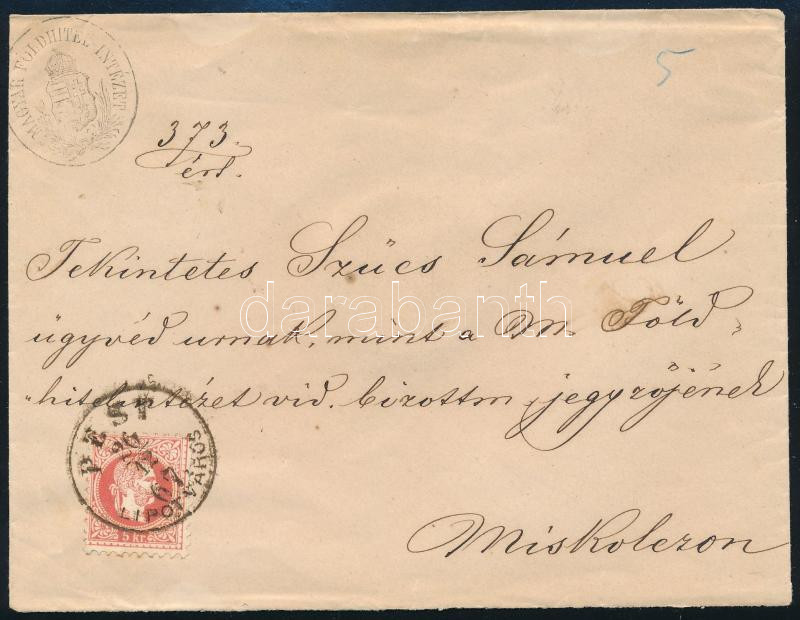 MAGYAR FÖLDHITEL INTÉZET
5
373.
ért.
Tekintetes Szűcs Sámuel
ügyvéd urnak, mint a M. Föld„
„hitelintézet vid. bizottm. jegyzőjének
Miskolczon
PEST
LIPOTVÁROS
5 kr.
darabanth